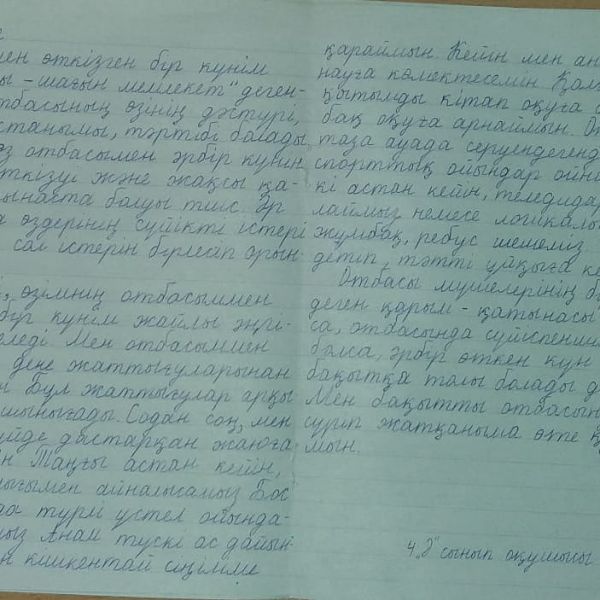 мен өткізген бір күнім
ы - шағын мемлекет" деген-
тбасының өзінің дәстүрі,
станымы, тәртібі болады
өз отбасымен әрбір күнін
өткізуі және жақсы қа-
ынаста болуы тиіс. Әр
а өздерінің сүйікті істері
сол істерін бірлесіп орын-
өзімнің отбасыммен
бір күнім жайлы әңгі-
еледі. Мен отбасыммен
дене жаттығуларынан
бұл жаттығулар арқы
шынығады. Содан соң, мен
үйде дастарқан жаюға
н Таңғы астан кейін,
ығымен айналысамыз Бос
да түрлі үстел ойында-
мыз Анам түскі ас дайын
н кішкентай сіңліме
қараймын. Кейін мен ан
науға көмектесемін Қал
қытымды кітап оқуға с
бақ оқуға арнаймын. От
таза ауада серуендегенд
спорттық ойындар ойн
кі астан кейін, теледидар
лаймыз немесе логикалы
жұмбақ, ребус шешеміз
детіп, тәтті ұйқыға ке
Отбасы мүшелерінің б
деген қарым - қатынасы
са, отбасында сүйіспенш
болса, әрбір өткен күн
бақытқа толы болады д
Мен бақытты отбасын
сүріп жатқаныма өте қ
мын.
4 "Ә" сынып оқушысы